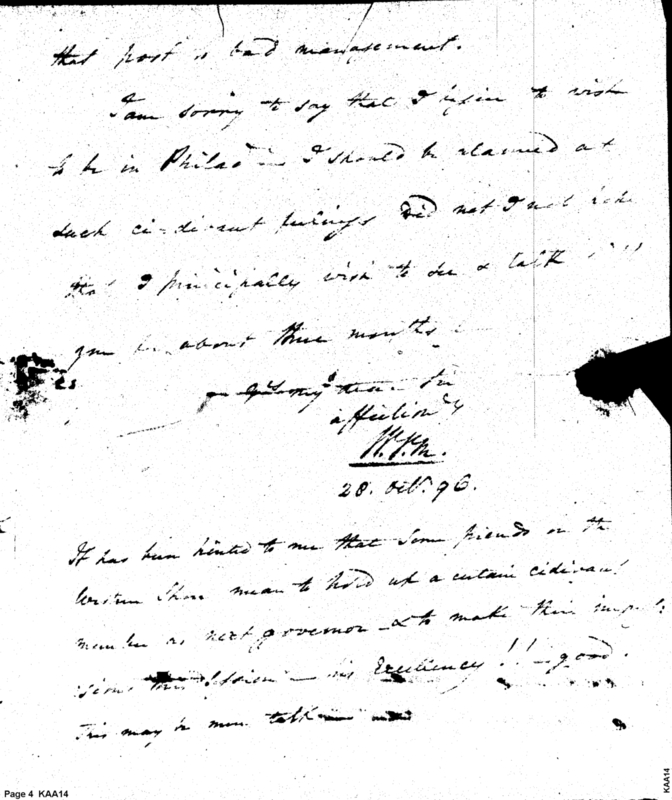 that post is bad management.
I am sorry to say that I begin to wish
to be in Philad I should be alarmed at
such ci-devant feelings did not I
that I principally wish to see & talk
you for about three months
affection^ly
20. Oct. 96.
It has been hinted to me that some friends on the
Western Shore mean to hold up a certain cidivant
member as next governor & to make their
his Excellency!! good.
This may be mere talk
Page 4 KAA14
KAA14